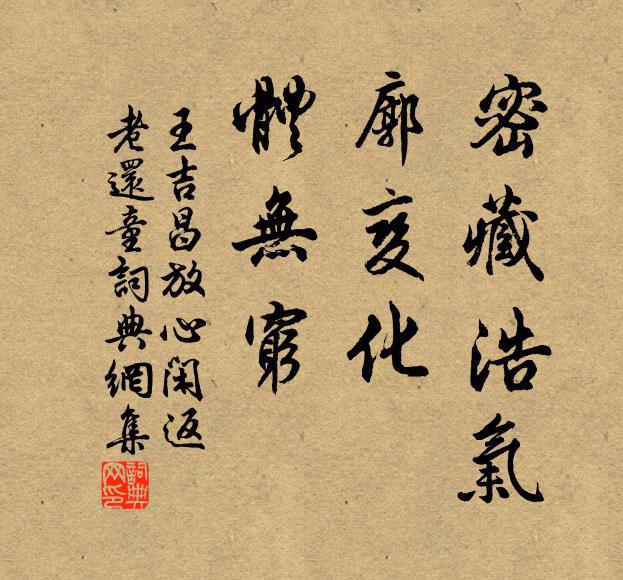 密藏浩氣
廓变化
體無窮
王吉昌放心閑返
老還童詞典網集
詞典
网印